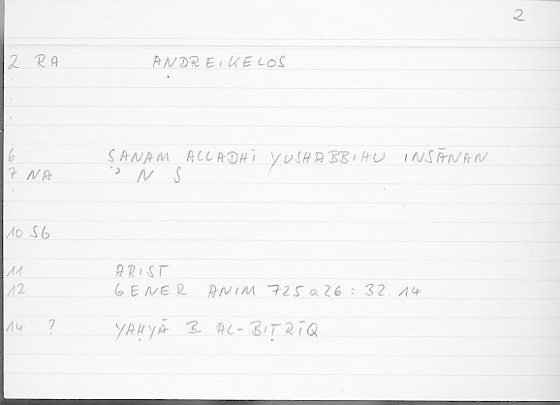 2
2 RA ANDREIKELOS
6 ṢANAM ALLADHĪ YUSHABBIHU INSĀNAN
7 NA Ṣ N S
10 SG
11 ARIST
12 GENER ANIM 725 a 26 : 32.14
14 ? YAḤYĀ B. AL-BIṬRĪQ